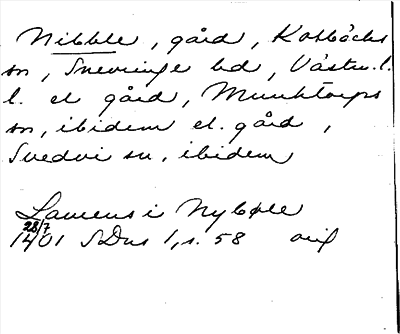 Nibble, gård, Kolbäcks
sn, Snevringe hd, Västm.l.
l. el gård, Munktorps
sn, ibidem el. gård,
Svedvi sn, ibidem
Laurens i Nybøle
28/7
1401 SDns 1, s. 58